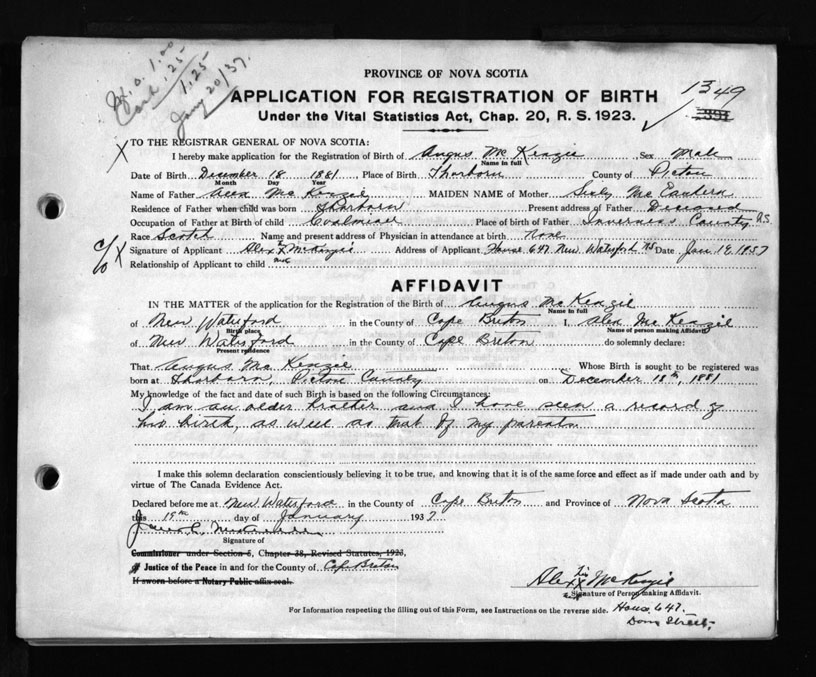 1.00
.25
1.25
Jany 20/37.
PROVINCE OF NOVA SCOTIA
APPLICATION FOR REGISTRATION OF BIRTH
1349
Under the Vital Statistics Act, Chap. 20, R. S. 1923.
X TO THE REGISTRAR GENERAL OF NOVA SCOTIA:
I hereby make application for the Registration of Birth of Angus McKenzie Sex Male
Name in full
Date of Birth December 18 1881 Place of Birth Thorborn County of Pictou
Month Day Year
Name of Father Alex McKenzie MAIDEN NAME of Mother McEachern
Residence of Father when child was born Thorborn Present address of Father Deceased
Occupation of Father at Birth of child Coalminer Place of birth of Father Inverness County N.S.
Race Scotch Name and present address of Physician in attendance at birth none
c/o X Signature of Applicant Alex X McKenzie Address of Applicant House 647 New Waterford NS Date Jan 19, 1937
Relationship of Applicant to child
AFFIDAVIT
IN THE MATTER of the application for the Registration of the Birth of Angus McKenzie
Name in full
of New Waterford in the County of Cape Breton I, Alex McKenzie
Birth place Name of person making Affidavit
of New Waterford in the County of Cape Breton do solemnly declare:
Present residence
That Angus McKenzie Whose Birth is sought to be registered was
born at Thorborn, Pictou County on December 18th, 1881
My knowledge of the fact and date of such Birth is based on the following Circumstances:
I am an older brother and I have seen a record of
his birth, as well as that of my parents.
I make this solemn declaration conscientiously believing it to be true, and knowing that it is of the same force and effect as if made under oath and by
virtue of The Canada Evidence Act.
Declared before me at New Waterford in the County of Cape Breton and Province of Nova Scotia
this 19th day of January 1937
Signature of
Commissioner under Section 5, Chapter 38, Revised Statutes, 1923,
Justice of the Peace in and for the County of Cape Breton
If sworn before a Notary Public affix seal.
Alex X McKenzie
Signature of Person making Affidavit.
For Information respecting the filling out of this Form, see Instructions on the reverse side.
House 647
Street